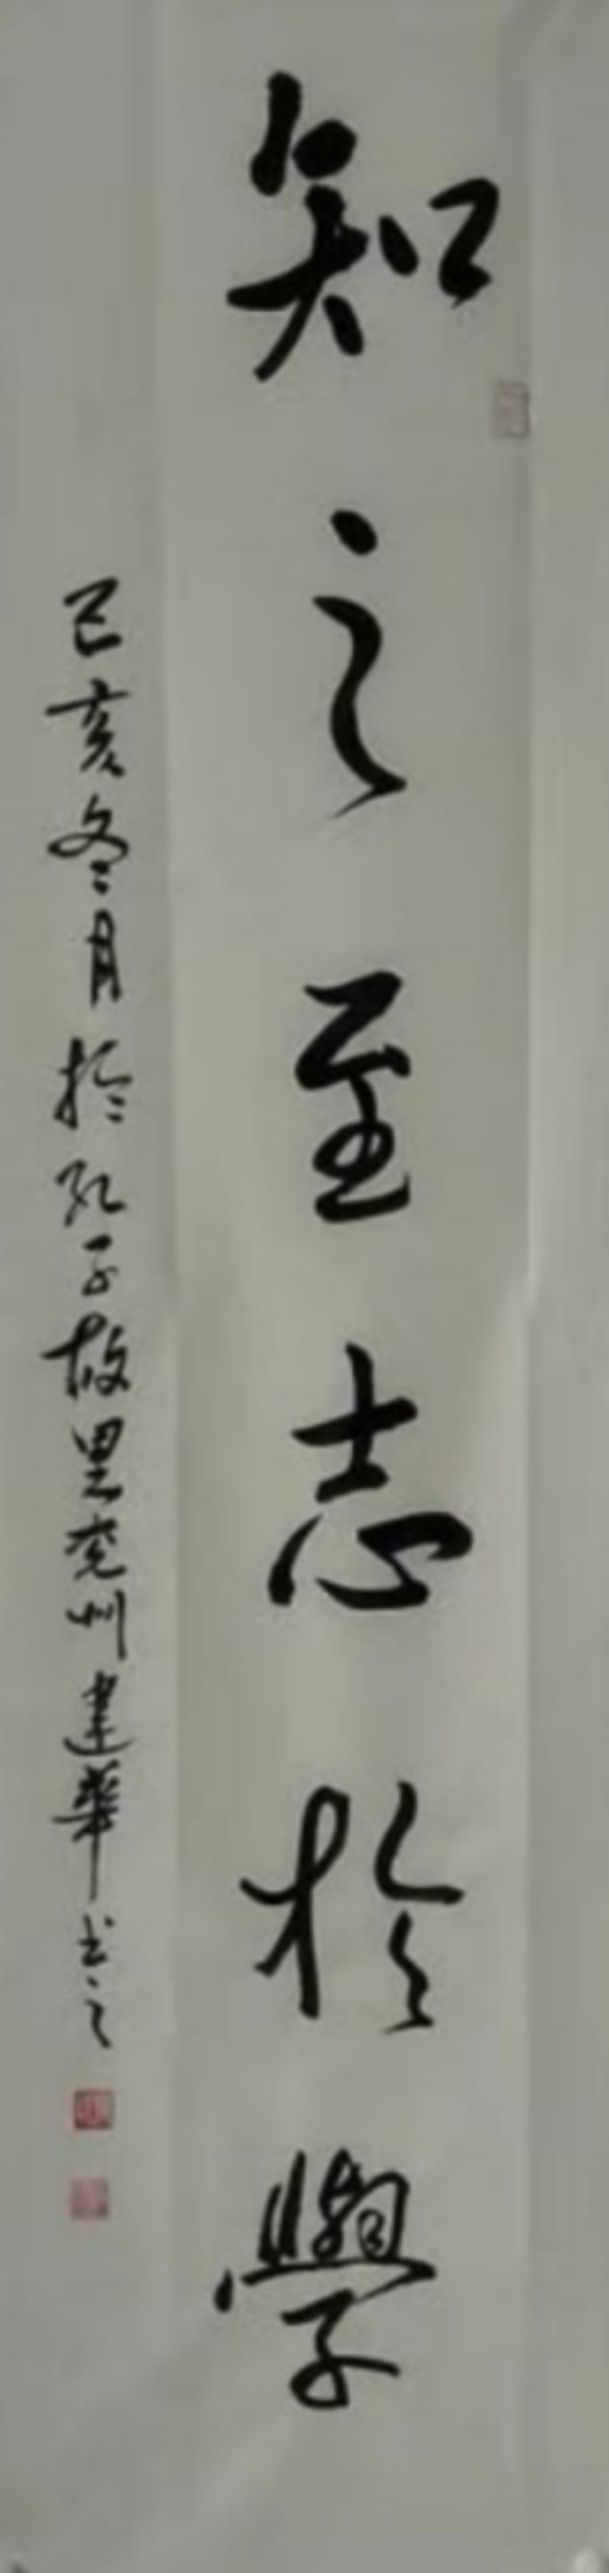 知之至志於學
己亥冬月於孔子故里兖州建華书之